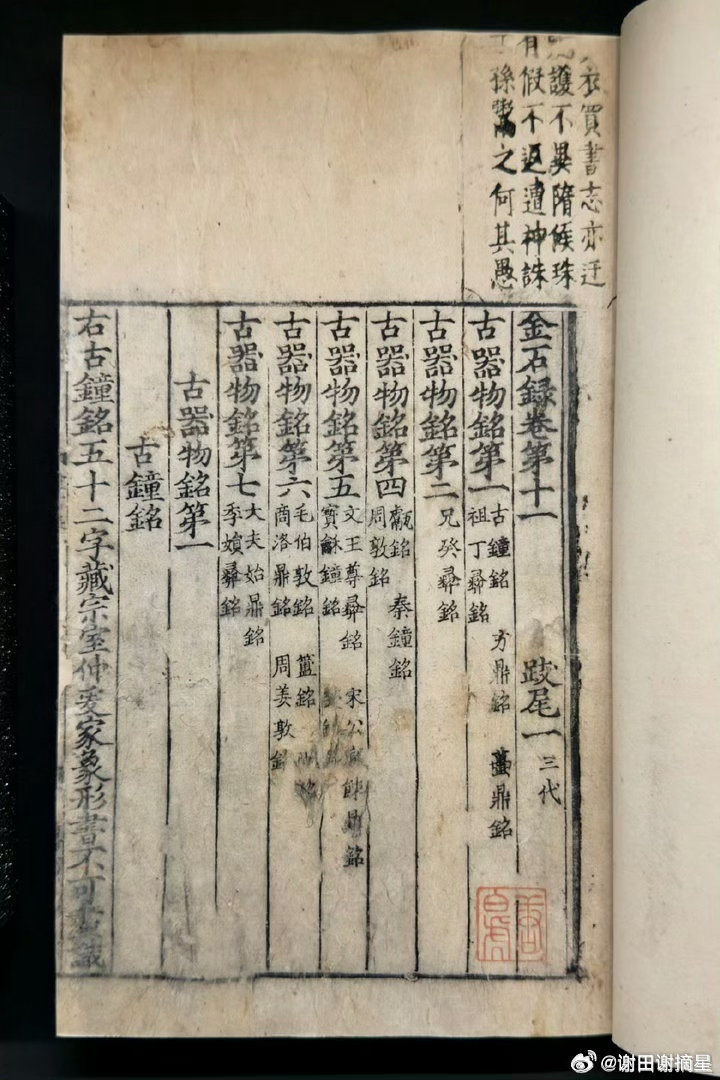 衣買書志亦迂
護不異隋侯珠
有假不返遭神誅
孫鬻之何其愚
金石録卷第十一 跋尾一 三代
古器物銘第一 古鐘銘 方鼎銘 鼎銘
祖丁彝銘
古器物銘第二 兄癸彝銘
古器物銘第四 銘 秦鐘銘
周敦銘
古器物銘第五 文王尊彝銘 宋公鼎銘
寶龢鐘銘
古器物銘第六 毛伯敦銘 簠銘
商洛鼎銘 周姜敦銘
古器物銘第七 大夫始鼎銘
季娟彝銘
古器物銘第一
古鐘銘
右古鐘銘五十二字藏宗室仲爰家象形書不可盡識
@谢田谢摘星